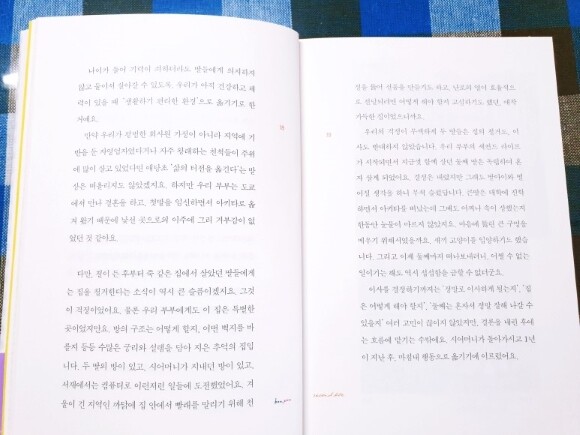 나이가 들어 기력이 쇠하더라도 딸들에게 의지하지
않고 둘이서 살아갈 수 있도록, 우리가 아직 건강하고 체
력이 있을 때 '생활하기 편리한 환경'으로 옮기기로 한
거예요.
만약 우리가 평범한 회사원 가정이 아니라 지역에 기
반을 둔 자영업자였다거나 자주 왕래하는 친척들이 주위
에 많이 살고 있었다면 애당초 '삶의 터전을 옮긴다'는 발
상은 떠올리지도 않았겠지요. 하지만 우리 부부는 도쿄
에서 만나 결혼을 하고, 첫딸을 임신하면서 아키타로 옮
겨 왔기 때문에 낯선 곳으로의 이주에 그리 거부감이 없
었던 것 같아요.
다만, 철이 든 후부터 쭉 같은 집에서 살았던 딸들에게
는 집을 철거한다는 소식이 역시 큰 슬픔이겠지요. 그것
이 걱정이었어요. 물론 우리 부부에게도 이 집은 특별한
곳이었지만요. 방의 구조는 어떻게 할지, 어떤 벽지를 바
를지 등등 수많은 궁리와 설렘을 담아 지은 추억의 집입
니다. 두 딸의 방이 있고, 시어머니가 지내던 방이 있고,
서재에서는 컴퓨터로 이런저런 일들에 도전했었어요. 겨
울이 긴 지역인 까닭에 집 안에서 빨래를 말리기 위해 천
18
장을 뚫어 선룸을 만들기도 하고, 난로의 열이 효율적으
로 전달되려면 어떻게 해야 할지 고심하기도 했던, 애착
가득한 집이었으니까요.
우리의 걱정이 무색하게 두 딸들은 집의 철거도, 이
사도 반대하지 않았습니다. 우리 부부의 세컨드 라이프
가 시작되면서 지금껏 함께 살던 둘째 딸은 독립하여 혼
자 살게 되었어요. 결정은 내렸지만 그래도 딸아이와 떨
어질 생각을 하니 무척 슬펐답니다. 큰딸은 대학에 진학
하면서 아키타를 떠났는데 그때도 어찌나 속이 상했는지
한동안 눈물이 마르지 않았지요. 마음에 뚫린 큰 구멍을
메우기 위해서였을까요. 새끼 고양이를 입양하기도 했습
니다. 그리고 이제 둘째마저 떠나보내려니, 어쩔 수 없는
일이기는 해도 역시 상실감을 금할 수 없더군요.
이사를 결정하기까지는 '정말로 이사하게 됐는지', '집
은 어떻게 해야 할지', '둘째는 혼자서 정말 잘해 나갈 수
있을지' 여러 고민이 끊이지 않았지만, 결론을 내린 후에
는 흐름에 맡기는 수밖에요. 시어머니가 돌아가시고 1년
이 지난 후, 마침내 행동으로 옮기기에 이르렀어요.
19